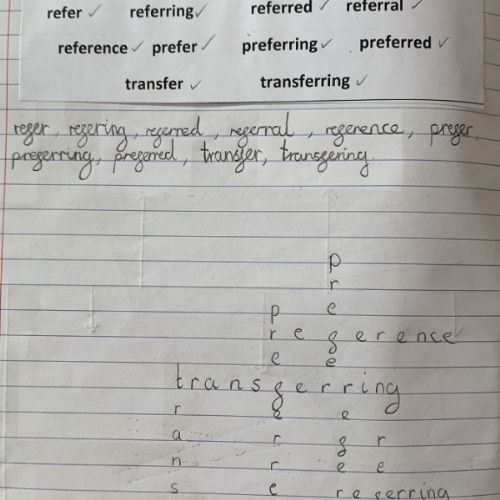 refer ✓ referring ✓ referred ✓ referral ✓
reference ✓ prefer ✓ preferring ✓ preferred ✓
transfer ✓ transferring ✓
refer, refering, referred, referral, reference, prefer,
preferring, preferred, transfer, transfering.
p
r
p e
r e f e r e n c e
e e
t r a n s f e r r i n g
r e e
a r f r
n r e e
s e r e f e r r i n g